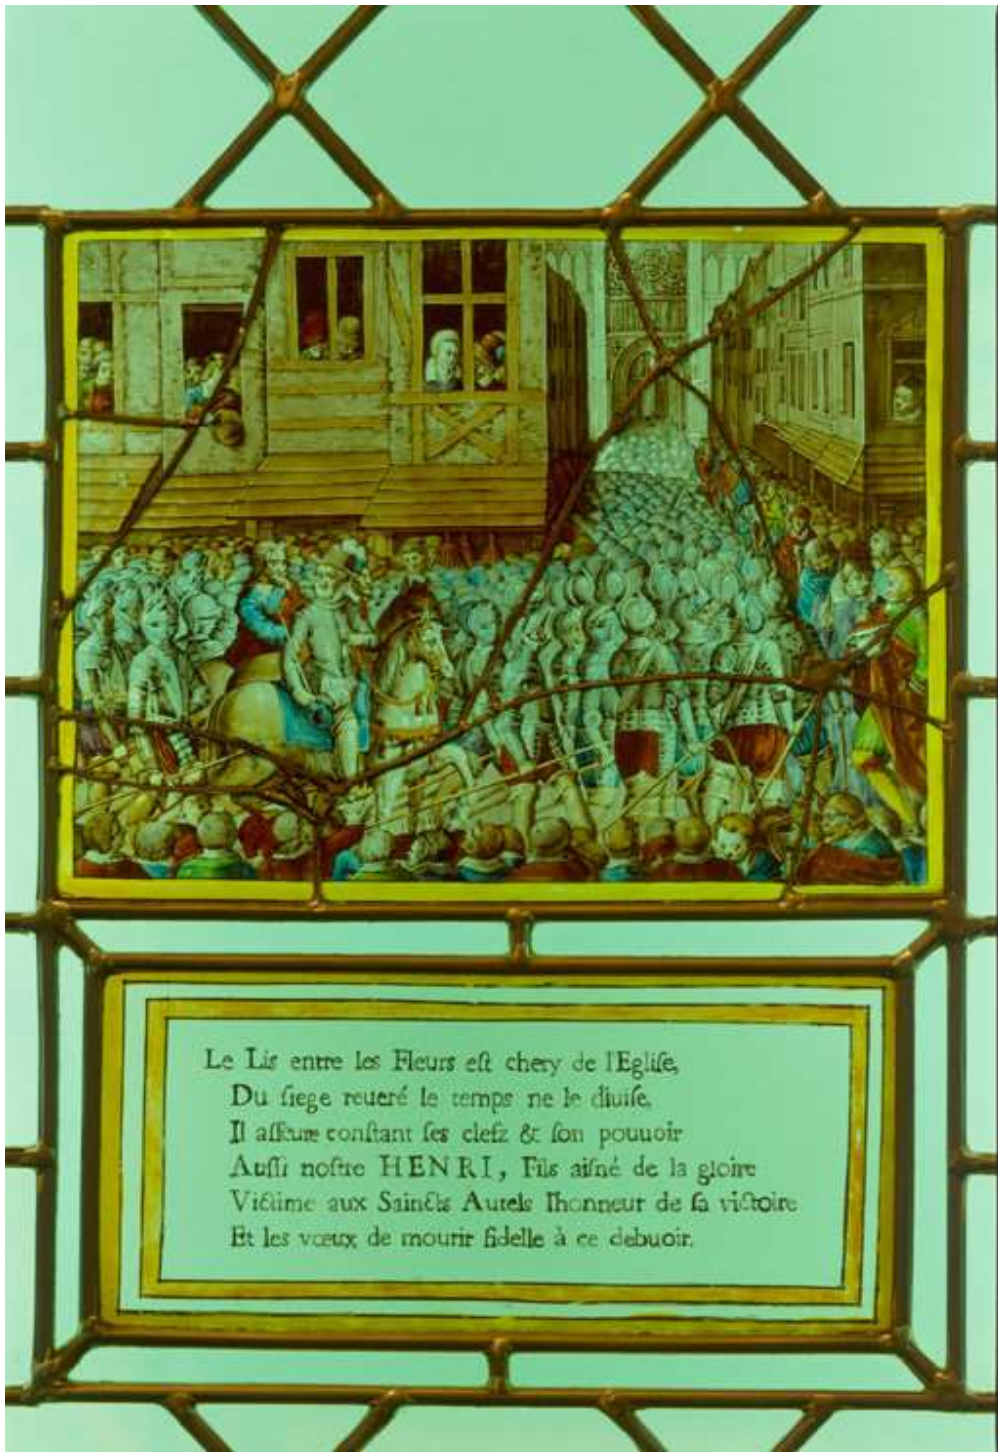 Le Lis entre les Fleurs eſt chery de l'Egliſe,
Du ſiege reueré le temps ne le diuiſe,
Il aſſeure conſtant ſes clefz & ſon pouuoir
Auſſi noſtre HENRI, Fils aiſné de la gloire
Victime aux Saincts Autels l'honneur de ſa victoire
Et les vœux de mourir fidelle à ce debuoir.